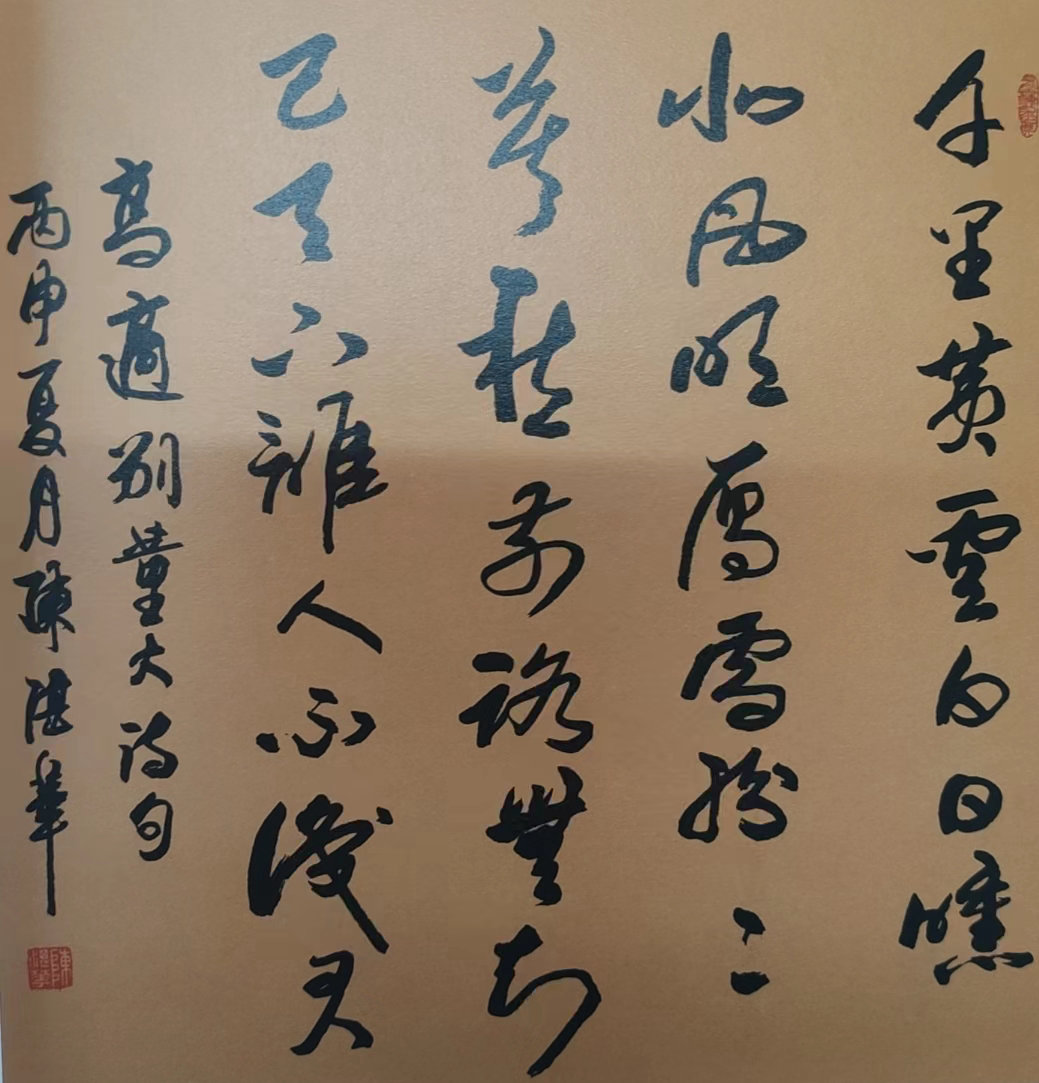 千里黄雲白日曛
北風吹雁雪紛〻
莫愁前路無知
己天下誰人不識君
高適别董大詩句
丙申夏月陳湛華